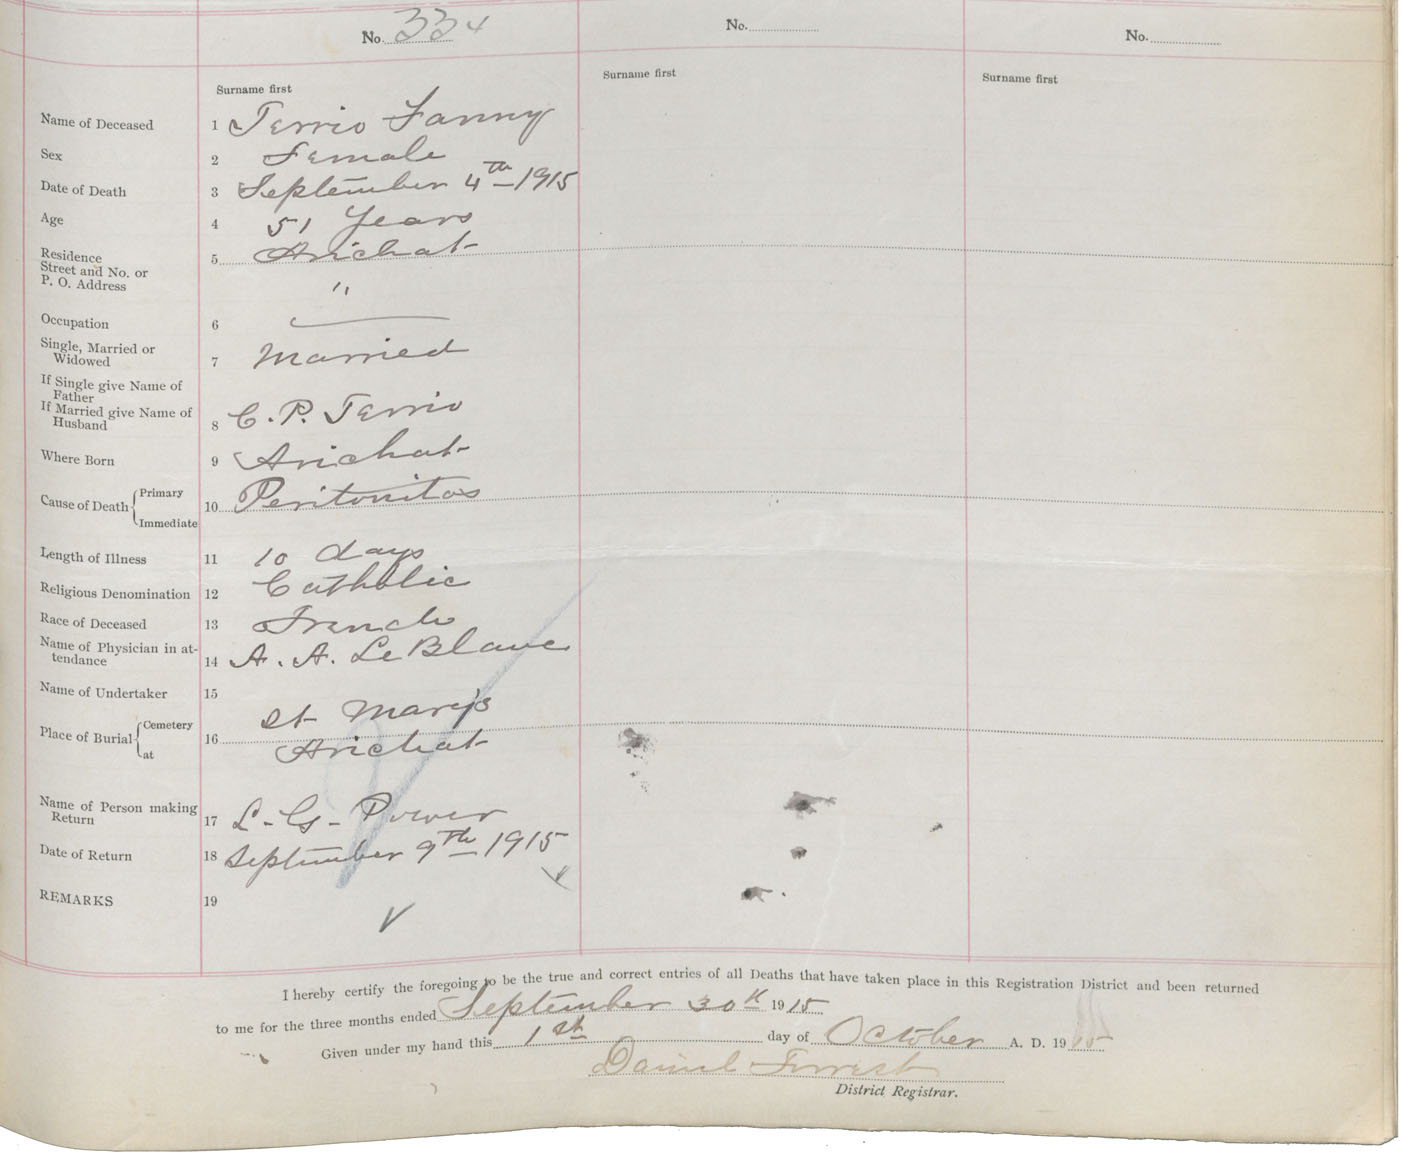 No. 334
No.
No.
Surname first
Surname first
Surname first
Name of Deceased 1 Terrio Fanny
Sex 2 Female
Date of Death 3 September 4th 1915
Age 4 51 Years
Residence 5 Arichat
Street and No. or
P. O. Address "
Occupation 6
Single, Married or
Widowed 7 Married
If Single give Name of
Father
If Married give Name of
Husband 8 C. P. Terrio
Where Born 9 Arichat
Cause of Death { Primary
Immediate 10 Peritonitas
Length of Illness 11 10 days
Religious Denomination 12 Catholic
Race of Deceased 13 French
Name of Physician in at-
tendance 14 A. A. LeBlanc
Name of Undertaker 15
Place of Burial { Cemetery 16 St Mary's
at Arichat
Name of Person making
Return 17 L. G. Power
Date of Return 18 September 9th 1915
REMARKS 19
I hereby certify the foregoing to be the true and correct entries of all Deaths that have taken place in this Registration District and been returned
to me for the three months ended September 30th 1915
Given under my hand this 1st day of October A. D. 1915
Daniel Forrest
District Registrar.